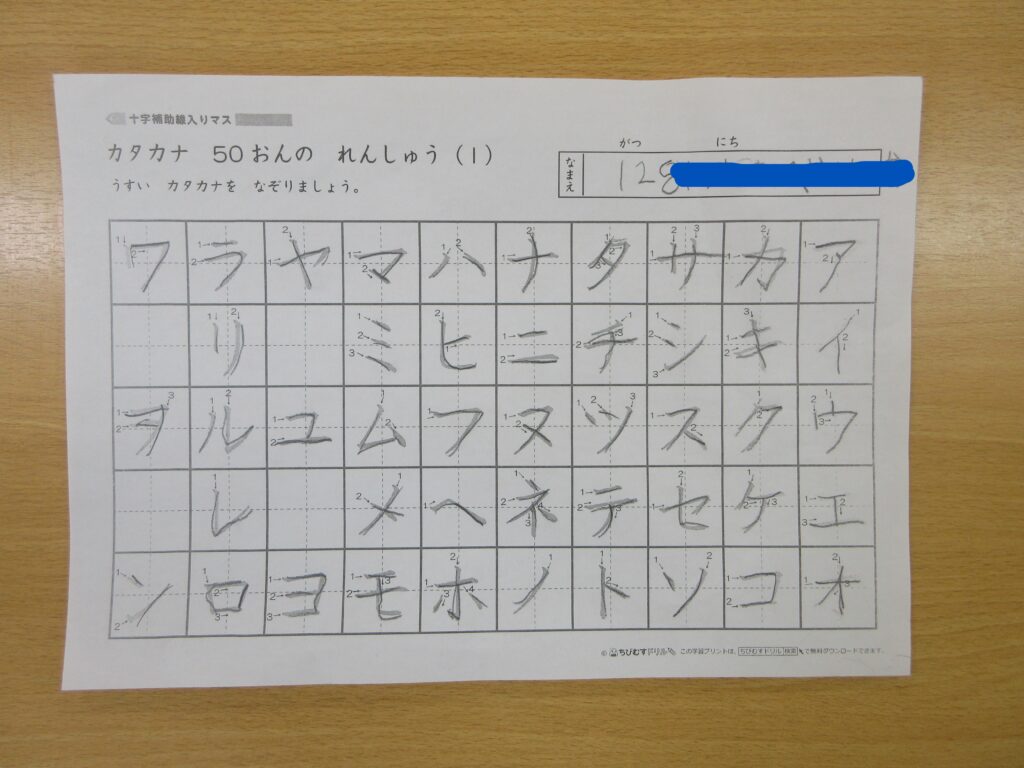 十字補助線入りマス
カタカナ 50おんの れんしゅう(1)
うすい カタカナを なぞりましょう。
がつ にち
なまえ 128
ワ ラ ヤ マ ハ ナ タ サ カ ア
リ ミ ヒ ニ チ シ キ イ
ヲ ル ユ ム フ ヌ ツ ス ク ウ
レ メ ヘ ネ テ セ ケ エ
ン ロ ヨ モ ホ ノ ト ソ コ オ
© ちびむすドリル この学習プリントは、ちびむすドリル 検索 で無料ダウンロードできます。